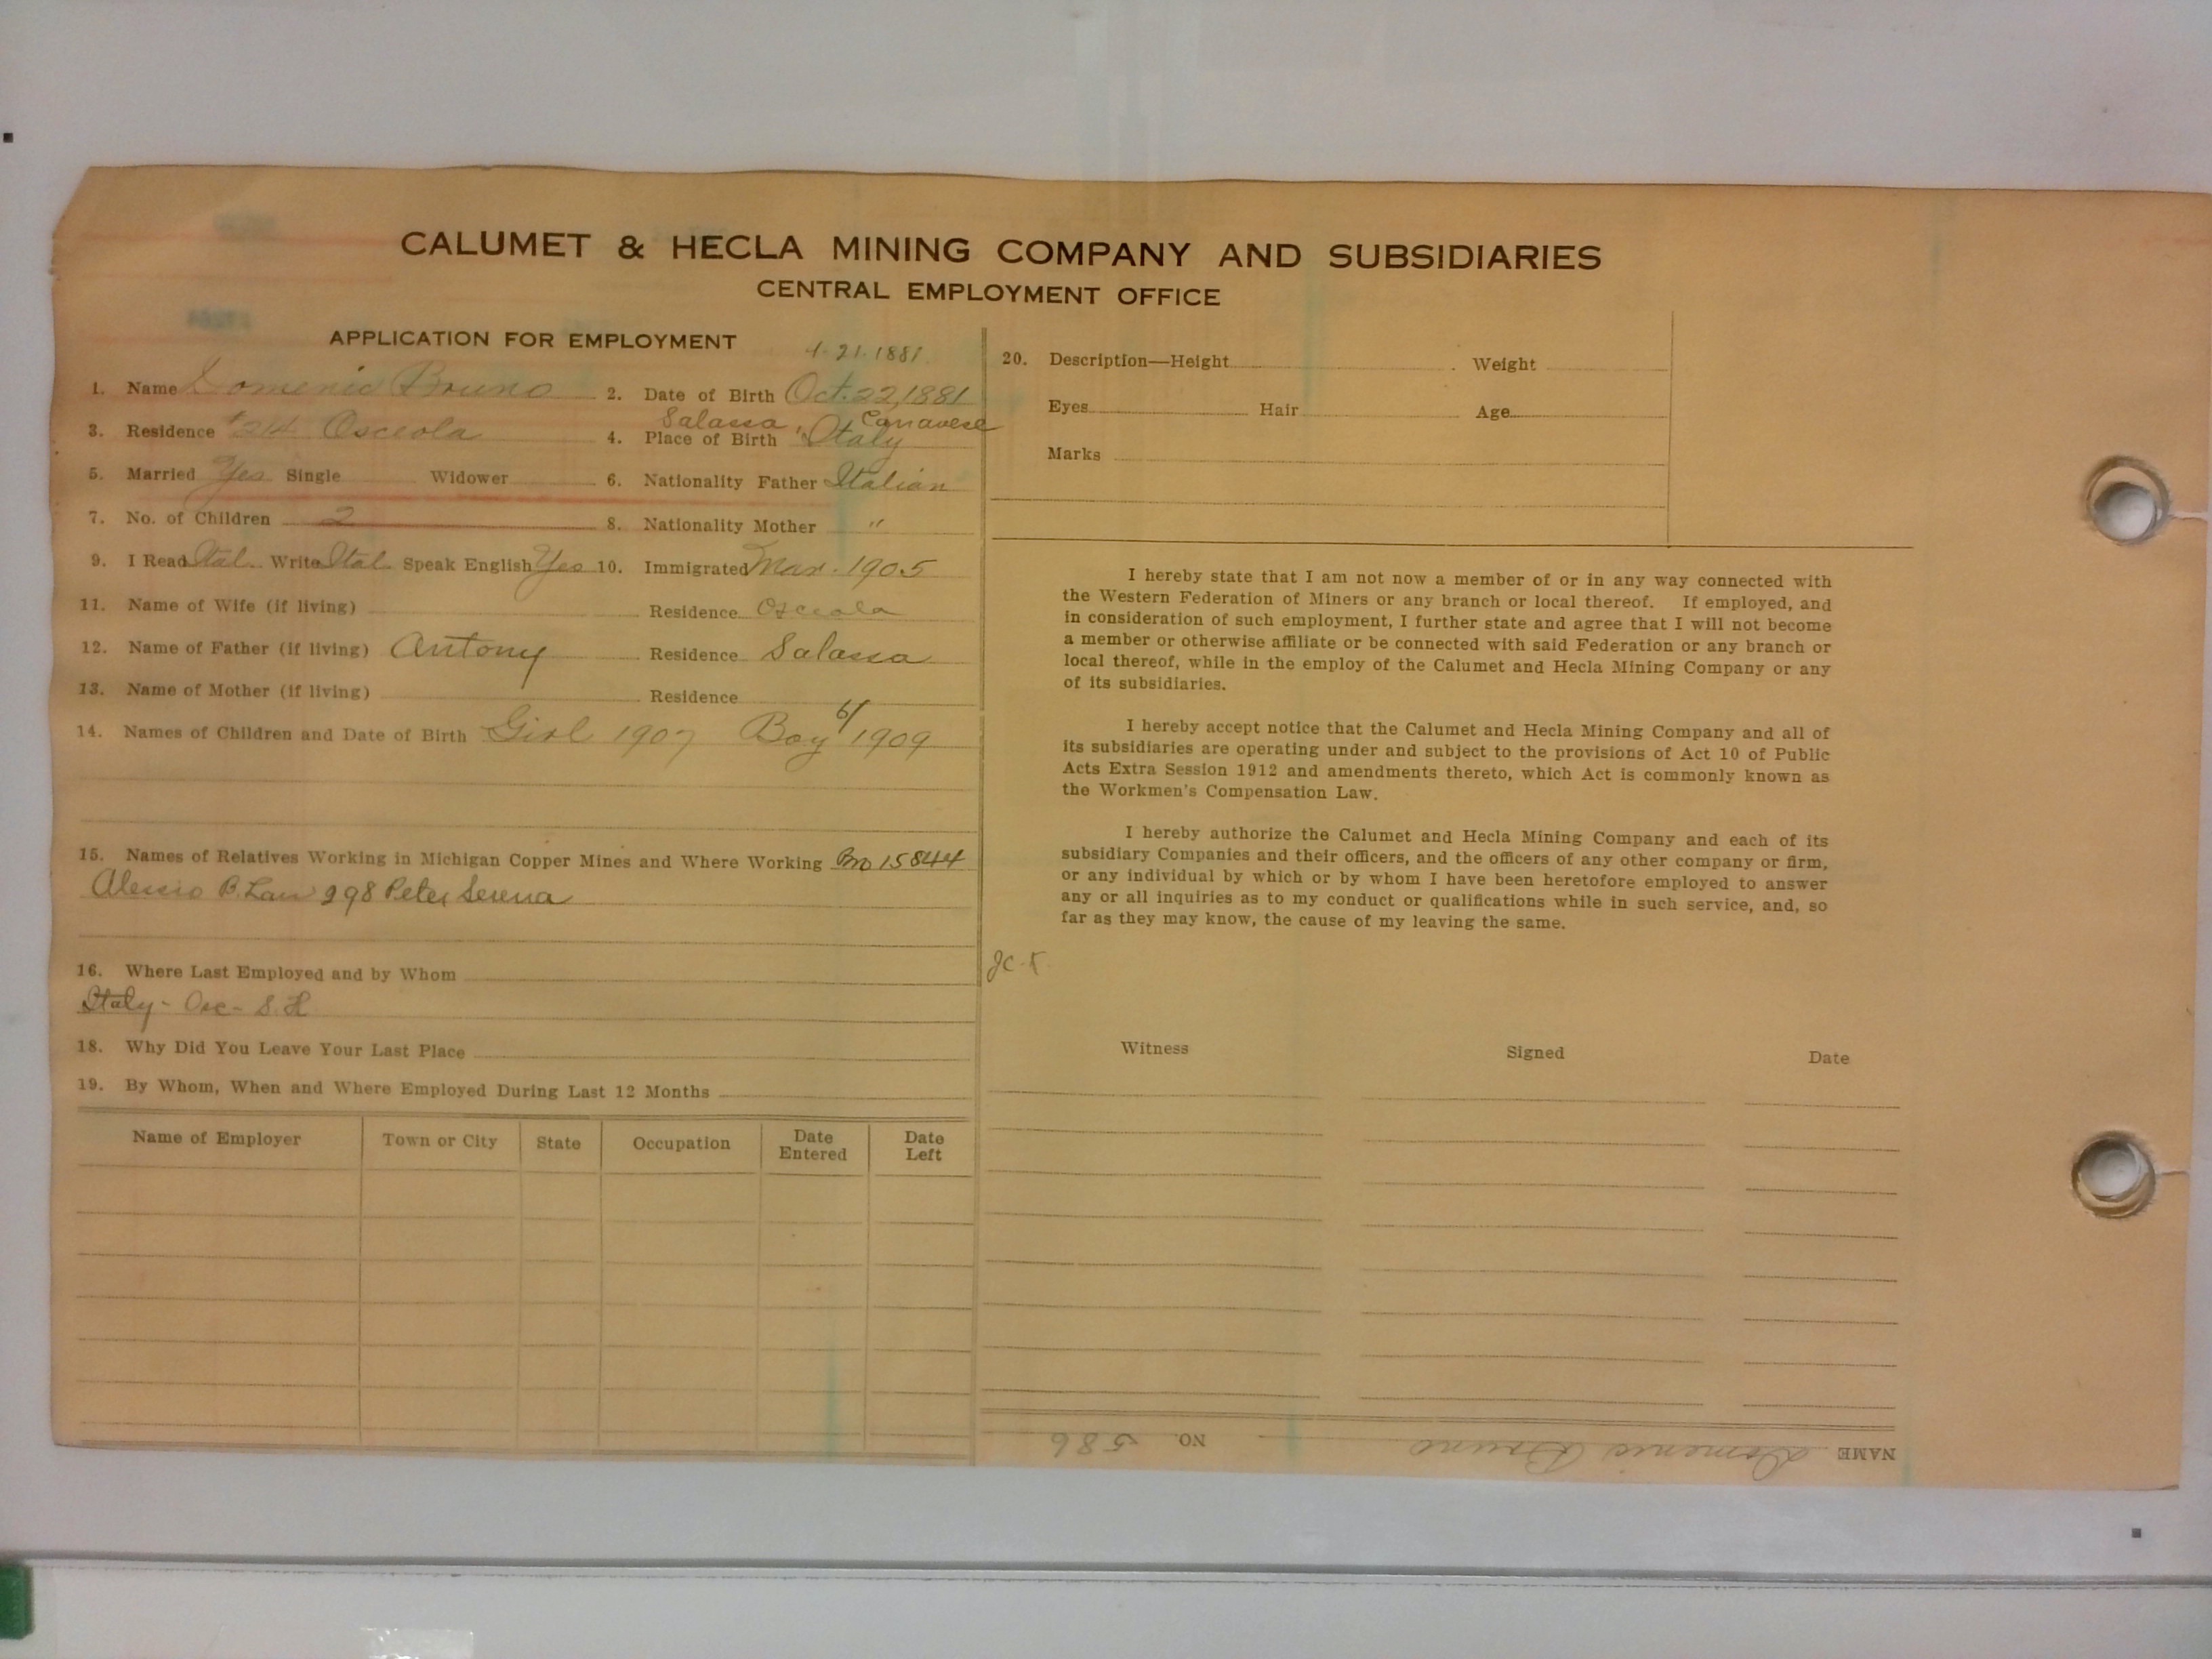 CALUMET & HECLA MINING COMPANY AND SUBSIDIARIES
CENTRAL EMPLOYMENT OFFICE
APPLICATION FOR EMPLOYMENT
21.1881
1. Name Domenic Bruno 2. Date of Birth Oct. 22, 1881
Salassa, Canavese
3. Residence Osceola 4. Place of Birth Italy
5. Married Yes Single Widower 6. Nationality Father Italian
7. No. of Children 2 8. Nationality Mother "
9. I Read Ital. Write Ital. Speak English Yes 10. Immigrated Mar. 1905
11. Name of Wife (if living) Residence Osceola
12. Name of Father (if living) Antony Residence Salassa
13. Name of Mother (if living) Residence
14. Names of Children and Date of Birth Girl 1907 Boy 6/1909
15. Names of Relatives Working in Michigan Copper Mines and Where Working Bro 15844
Alessio B. Law 298 Peter Serena
16. Where Last Employed and by Whom
Italy - Osc - S. H
18. Why Did You Leave Your Last Place
19. By Whom, When and Where Employed During Last 12 Months
Name of Employer Town or City State Occupation Date Entered Date Left
20. Description—Height Weight
Eyes Hair Age
Marks
I hereby state that I am not now a member of or in any way connected with
the Western Federation of Miners or any branch or local thereof. If employed, and
in consideration of such employment, I further state and agree that I will not become
a member or otherwise affiliate or be connected with said Federation or any branch or
local thereof, while in the employ of the Calumet and Hecla Mining Company or any
of its subsidiaries.
I hereby accept notice that the Calumet and Hecla Mining Company and all of
its subsidiaries are operating under and subject to the provisions of Act 10 of Public
Acts Extra Session 1912 and amendments thereto, which Act is commonly known as
the Workmen's Compensation Law.
I hereby authorize the Calumet and Hecla Mining Company and each of its
subsidiary Companies and their officers, and the officers of any other company or firm,
or any individual by which or by whom I have been heretofore employed to answer
any or all inquiries as to my conduct or qualifications while in such service, and, so
far as they may know, the cause of my leaving the same.
Witness Signed Date
NAME Domenic Bruno NO. 586